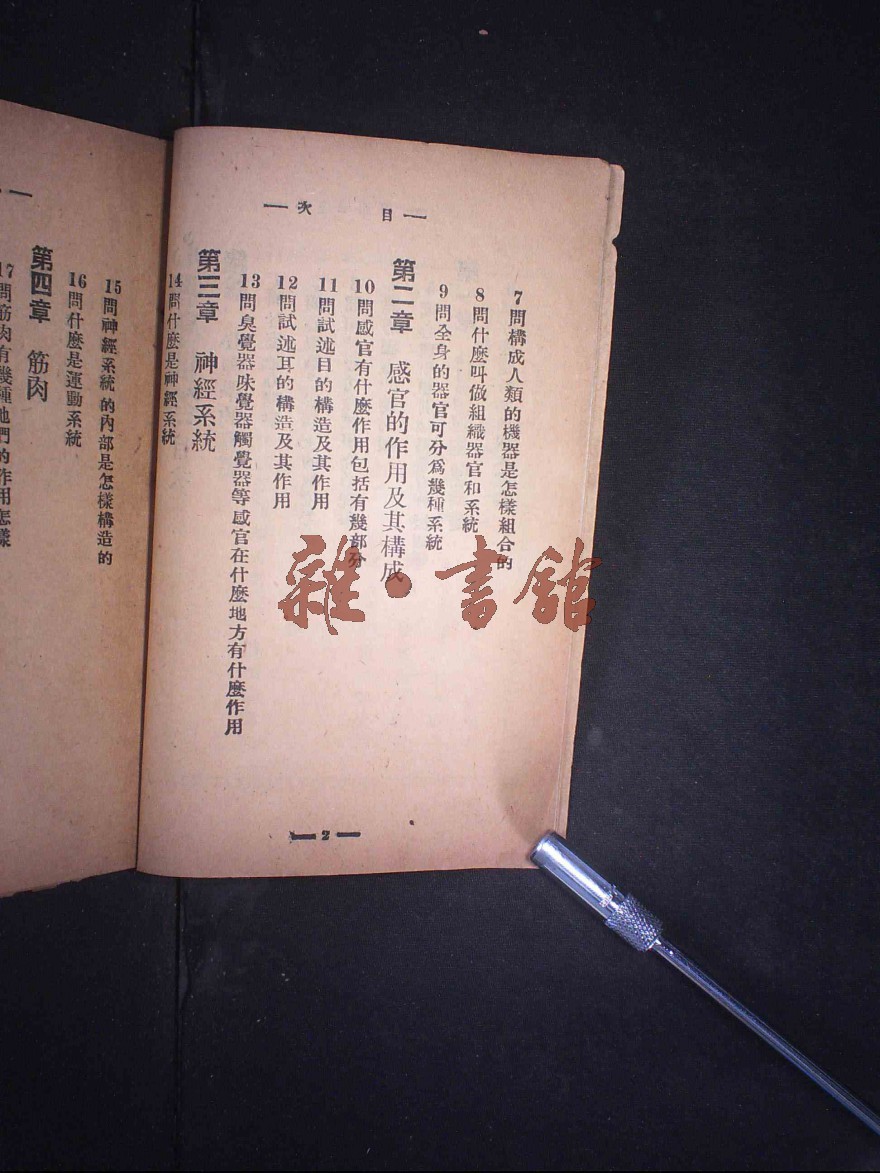 — 目次 —
7 問構成人類的機器是怎樣組合的
8 問什麼叫做組織器官和系統
9 問全身的器官可分爲幾種系統
第二章 感官的作用及其構成
10 問感官有什麼作用包括有幾部分
11 問試述目的構造及其作用
12 問試述耳的構造及其作用
13 問臭覺器味覺器觸覺器等感官在什麼地方有什麼作用
第三章 神經系統
14 問什麼是神經系統
— 2 —
15 問神經系統的內部是怎樣構造的
16 問什麼是運動系統
第四章 筋肉
17 問筋肉有幾種他們的作用怎樣
雜·書館